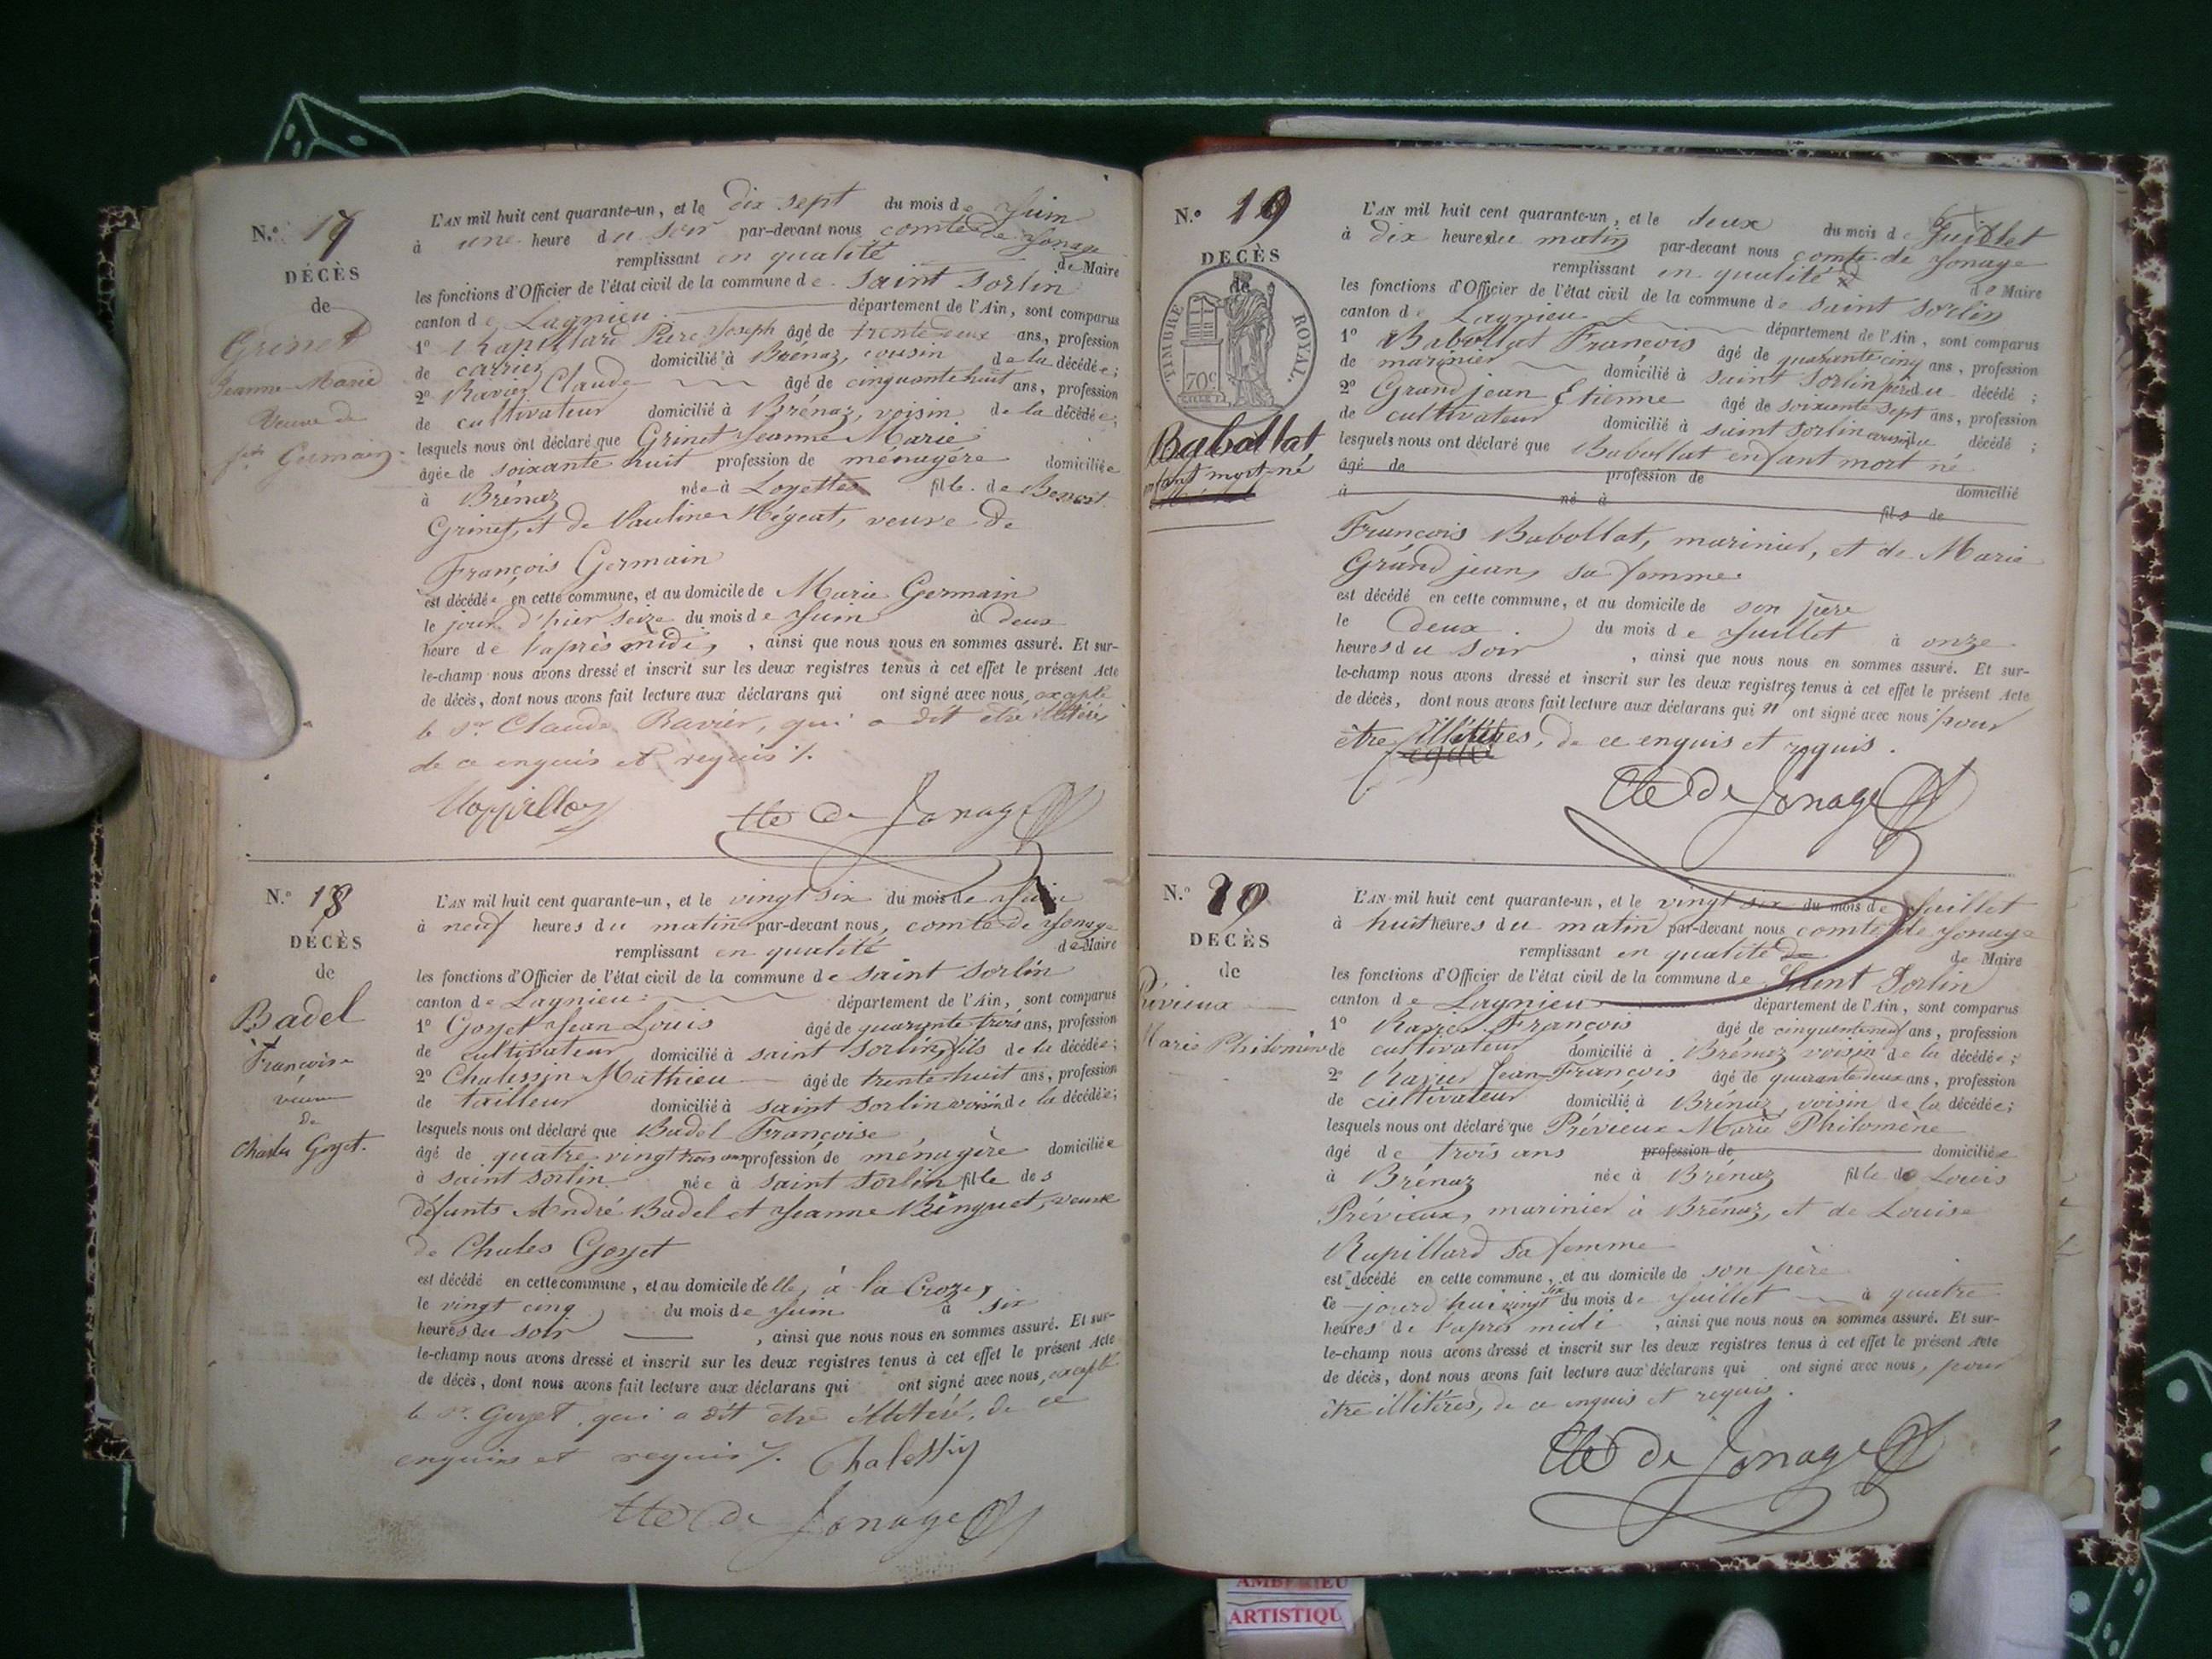 N.o 17
DÉCÈS
de
Grinet
Jeanne Marie
Veuve de
Germain
L'AN mil huit cent quarante-un, et le dix sept du mois de Juin
à une heure du soir par-devant nous comte de Jonage
remplissant en qualité de Maire
les fonctions d'Officier de l'état civil de la commune de Saint Sorlin
canton de Lagnieu département de l'Ain, sont comparus
1o Rapillard Pierre Joseph âgé de trente deux ans, profession
de carrier domicilié à Brénaz, cousin de la décédée;
2o Ravier Claude âgé de cinquante huit ans, profession
de cultivateur domicilié à Brénaz, voisin de la décédée;
lesquels nous ont déclaré que Grinet Jeanne Marie
âgée de soixante huit profession de ménagère domiciliée
à Brénaz née à Loyettes fille de Benoit
Grinet, et de Pauline Mégeat, veuve de
François Germain
est décédée en cette commune, et au domicile de Marie Germain
le jour d'hier seize du mois de Juin à deux
heure de l'après midi, , ainsi que nous nous en sommes assuré. Et sur-
le-champ nous avons dressé et inscrit sur les deux registres tenus à cet effet le présent Acte
de décès, dont nous avons fait lecture aux déclarans qui ont signé avec nous, excepté
le Sr Claude Ravier, qui a dit être illitéré
de ce enquis et requis ./.
Cte De Jonage
N.o 18
DÉCÈS
de
Badel
Françoise
veuve
de
Charles Goyet.
L'AN mil huit cent quarante-un, et le vingt six du mois de Juin
à neuf heures du matin par-devant nous, comte de Jonage
remplissant en qualité de Maire
les fonctions d'Officier de l'état civil de la commune de saint Sorlin
canton de Lagnieu département de l'Ain, sont comparus
1o Goyet Jean Louis âgé de quarante trois ans, profession
de cultivateur domicilié à saint Sorlin, fils de la décédée;
2o Chalessin Mathieu âgé de trente huit ans, profession
de tailleur domicilié à saint Sorlin voisin de la décédée;
lesquels nous ont déclaré que Badel Françoise
âgé de quatre vingt trois ans profession de ménagère domiciliée
à saint sorlin née à saint Sorlin fille des
défunts André Badel et Jeanne Binguet, veuve
de Chales Goyet
est décédé en cette commune, et au domicile d'elle, à la Croze,
le vingt cinq du mois de Juin à six
heures du soir , ainsi que nous nous en sommes assuré. Et sur-
le-champ nous avons dressé et inscrit sur les deux registres tenus à cet effet le présent Acte
de décès, dont nous avons fait lecture aux déclarans qui ont signé avec nous, excepté
le Sr. Goyet, qui a dit être illitéré, de ce
enquis et requis ./. Chalessin
Cte De Jonage
N.o 19
DÉCÈS
de
TIMBRE ROYAL.
70c
Babollat
enfant mort né
L'AN mil huit cent quarante-un, et le deux du mois de Juillet
à dix heures du matin par-devant nous comte de Jonage
remplissant en qualité de Maire
les fonctions d'Officier de l'état civil de la commune de saint Sorlin
canton de Lagnieu département de l'Ain, sont comparus
1o Babollat François âgé de quarante cinq ans, profession
de marinier domicilié à saint Sorlin père du décédé ;
2o Grand jean Etienne âgé de soixante sept ans, profession
de cultivateur domicilié à saint Sorlin du décédé ;
lesquels nous ont déclaré que Babollat enfant mort né
âgé de profession de domicilié
à né à fils de
François Babollat, marinier, et de Marie
Grand jean, sa femme
est décédé en cette commune, et au domicile de son père
le deux du mois de Juillet à onze
heures du soir , ainsi que nous nous en sommes assuré. Et sur-
le-champ nous avons dressé et inscrit sur les deux registres tenus à cet effet le présent Acte
de décès, dont nous avons fait lecture aux déclarans qui n'ont signé avec nous pour
être illitérés, de ce enquis et requis.
Cte De Jonage
N.o 20
DÉCÈS
de
Prévieux
Marie Philomène
L'AN mil huit cent quarante-un, et le vingt six du mois de Juillet
à huit heures du matin par-devant nous comte de Jonage
remplissant en qualité de de Maire
les fonctions d'Officier de l'état civil de la commune de Saint Sorlin
canton de Lagnieu département de l'Ain, sont comparus
1o Ravier François âgé de cinquante neuf ans, profession
de cultivateur domicilié à Brénaz voisin de la décédée;
2o Ravier Jean-François âgé de quarante deux ans, profession
de cultivateur domicilié à Brénaz, voisin de la décédée;
lesquels nous ont déclaré que Prévieux Marie Philomène
âgé de trois ans profession de domiciliée
à Brénaz née à Brénaz fille de Louis
Prévieux, marinier à Brénaz, et de Louise
Rapillard sa femme
est décédé en cette commune, et au domicile de son père
ce jourd'hui vingt six du mois de Juillet à quatre
heures de l'après midi , ainsi que nous nous en sommes assuré. Et sur-
le-champ nous avons dressé et inscrit sur les deux registres tenus à cet effet le présent Acte
de décès, dont nous avons fait lecture aux déclarans qui ont signé avec nous, pour
être illitérés, de ce enquis et requis.
Cte De Jonage
AMBERIEU
ARTISTIQU